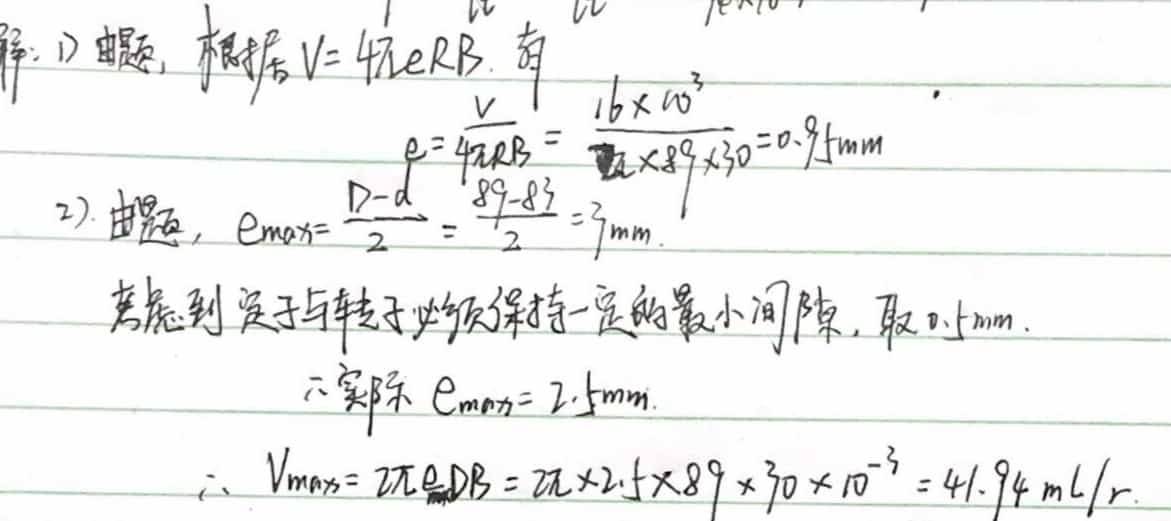 解: 1) 由题, 根据 V = 4πeRB. 有
e = V/4πRB = 16×10³/2π×89×30 = 0.95mm
2). 由题, emax = D-d/2 = 89-83/2 = 3mm.
考虑到定子与转子必须保持一定的最小间隙, 取 0.5mm.
∴实际 emax = 2.5mm.
∴ Vmax = 2πeDB = 2π×2.5×89×30×10⁻³ = 41.94 mL/r.